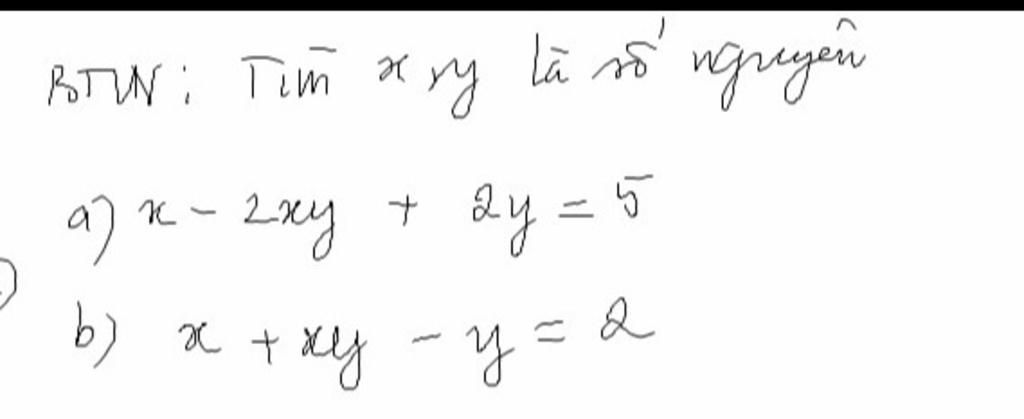 BTVN: Tìm x, y là số nguyên
a) x - 2xy + 2y = 5
b) x + xy - y = 2